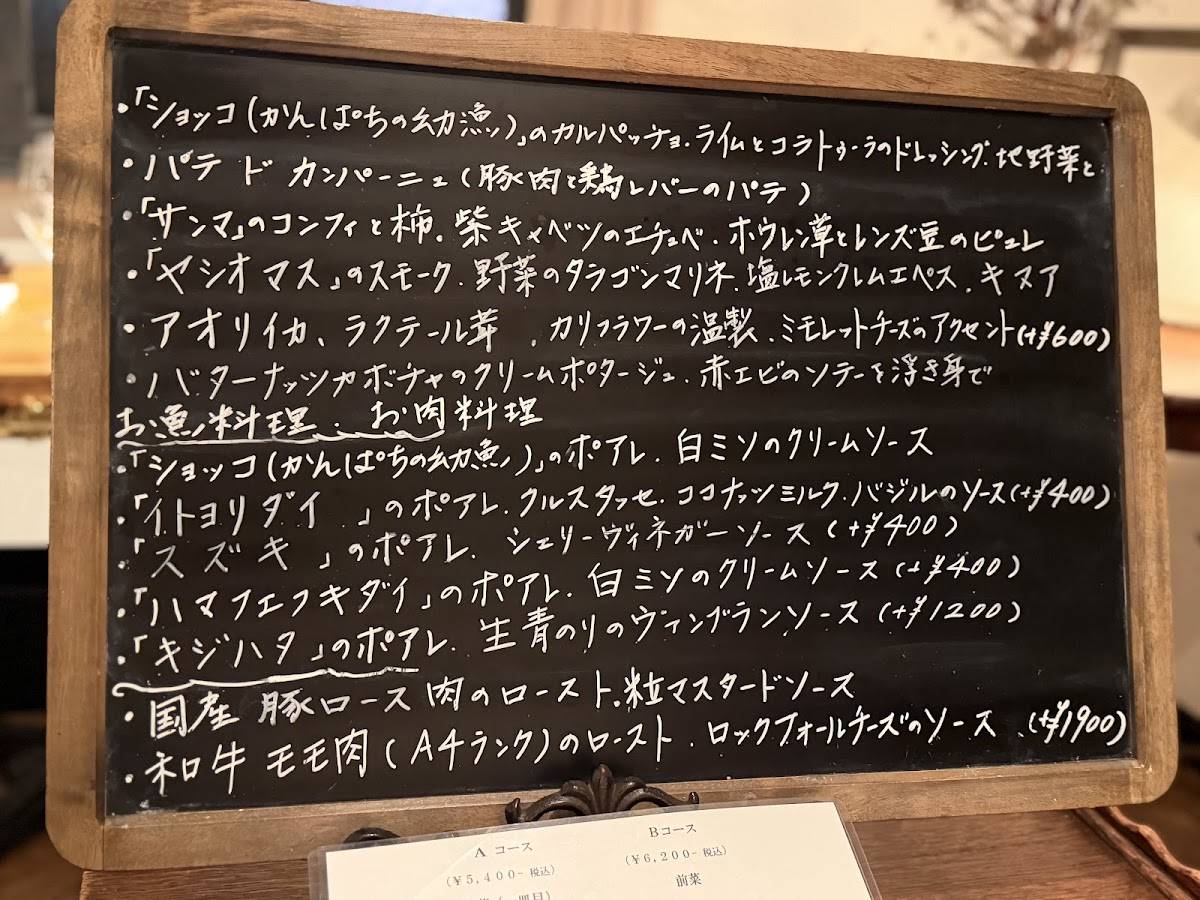 ・「ショッコ(かんぱちの幼漁)」のカルパッチョ.ライムとコラトゥーラのドレッシング.地野菜と
・パテ ド カンパーニュ(豚肉と鶏レバーのパテ)
・「サンマ」のコンフィと柿.紫キャベツのエチュベ.ホウレン草とレンズ豆のピュレ
・「ヤシオマス」のスモーク.野菜のタラゴンマリネ.塩レモンクレムエペス.キヌア
・アオリイカ、ラクテール茸.カリフラワーの温製.ミモレットチーズのアクセント(+¥600)
・バターナッツカボチャのクリームポタージュ.赤エビのソテーを浮き身で
お魚料理.お肉料理
・「ショッコ(かんぱちの幼魚)」のポアレ.白ミソのクリームソース
・「イトヨリダイ」のポアレ.クルスタッセ.ココナッツミルク.バジルのソース(+¥400)
・「スズキ」のポアレ.シェリーヴィネガーソース(+¥400)
・「ハマフエフキダイ」のポアレ.白ミソのクリームソース(+¥400)
・「キジハタ」のポアレ.生青のりのヴァンブランソース(+¥1200)
・国産 豚ロース肉のロースト.粒マスタードソース
・和牛モモ肉(A4ランク)のロースト.ロックフォールチーズのソース.(+¥1900)
A コース
(¥5,400-税込)
Bコース
(¥6,200-税込)
前菜